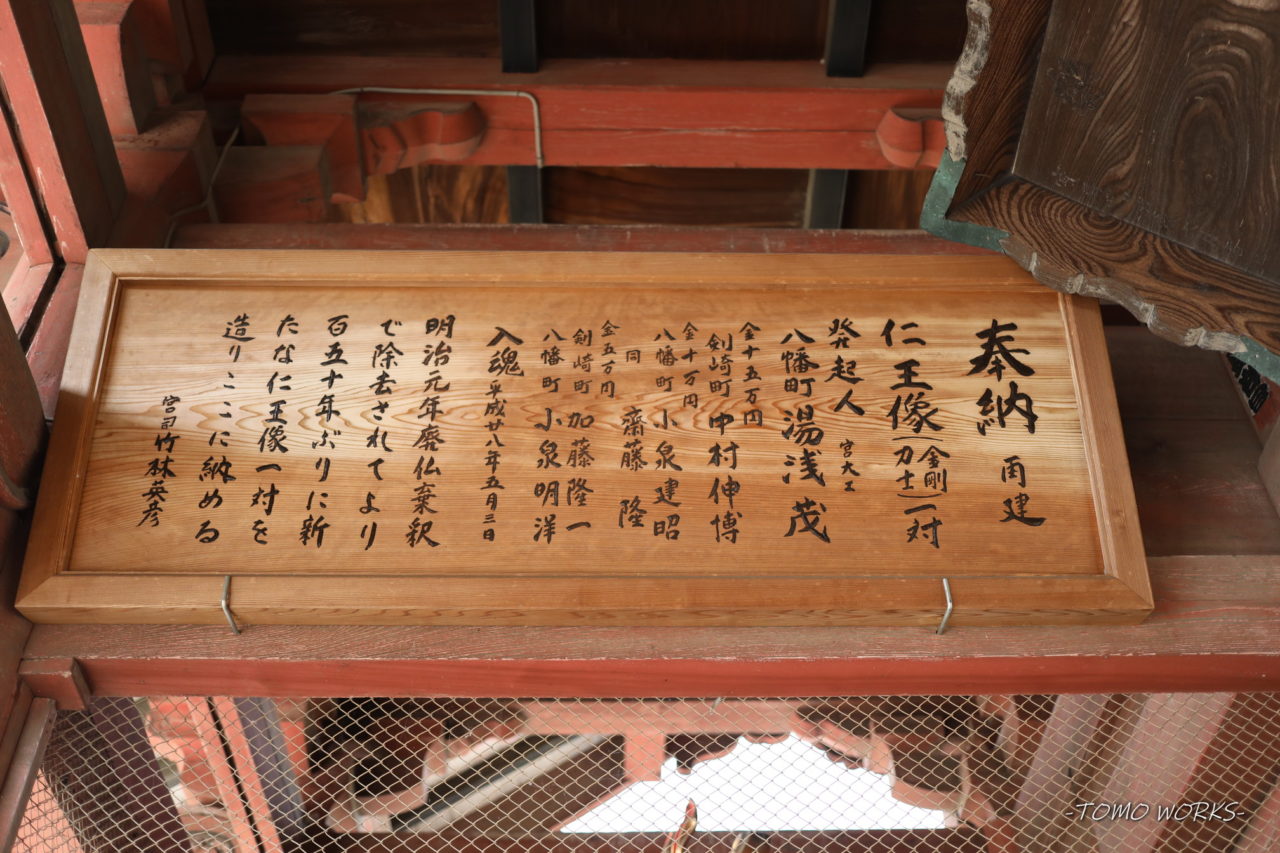 奉納 再建
仁王像(金剛力士)一対
発起人 宮大工
八幡町 湯浅 茂
金十五万円
剣崎町 中村伸博
金十万円
八幡町 小泉建昭
同 齋藤 隆
金五万円
剣崎町 加藤隆一
八幡町 小泉明洋
入魂 平成廿八年五月三日
明治元年廃仏棄釈
で除去されてより
百五十年ぶりに新
たな仁王像一対を
造りここに納める
宮司 竹林英彦
-TOMO WORKS-